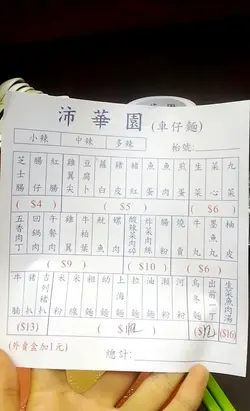 沛華園 (車仔麵)
小辣 中辣 多辣 枱號:
芝士腸 腸仔 紅腸 雞翼尖 豆腐卜 蘿蔔 豬皮 豬紅 魚蛋 魚肉 煎蛋 生菜 菜心 丸
($4) ($5) ($6)
五香肉丁 回鍋肉 牛筋 雞翼 牛柏葉 魷魚 螺肉 酸辣菜肉碎 炸菜肉絲 燒賣 牛丸 墨魚丸 柚皮
($9) ($10) ($6)
牛腩 豬扒 吉列豬扒 米粉 米線 粗麵 幼麵 上海麵 油麵 瀨粉 河粉 烏冬 出前一丁 生菜魚肉湯
($13) ($16)
(外賣盒加1元) 總計: